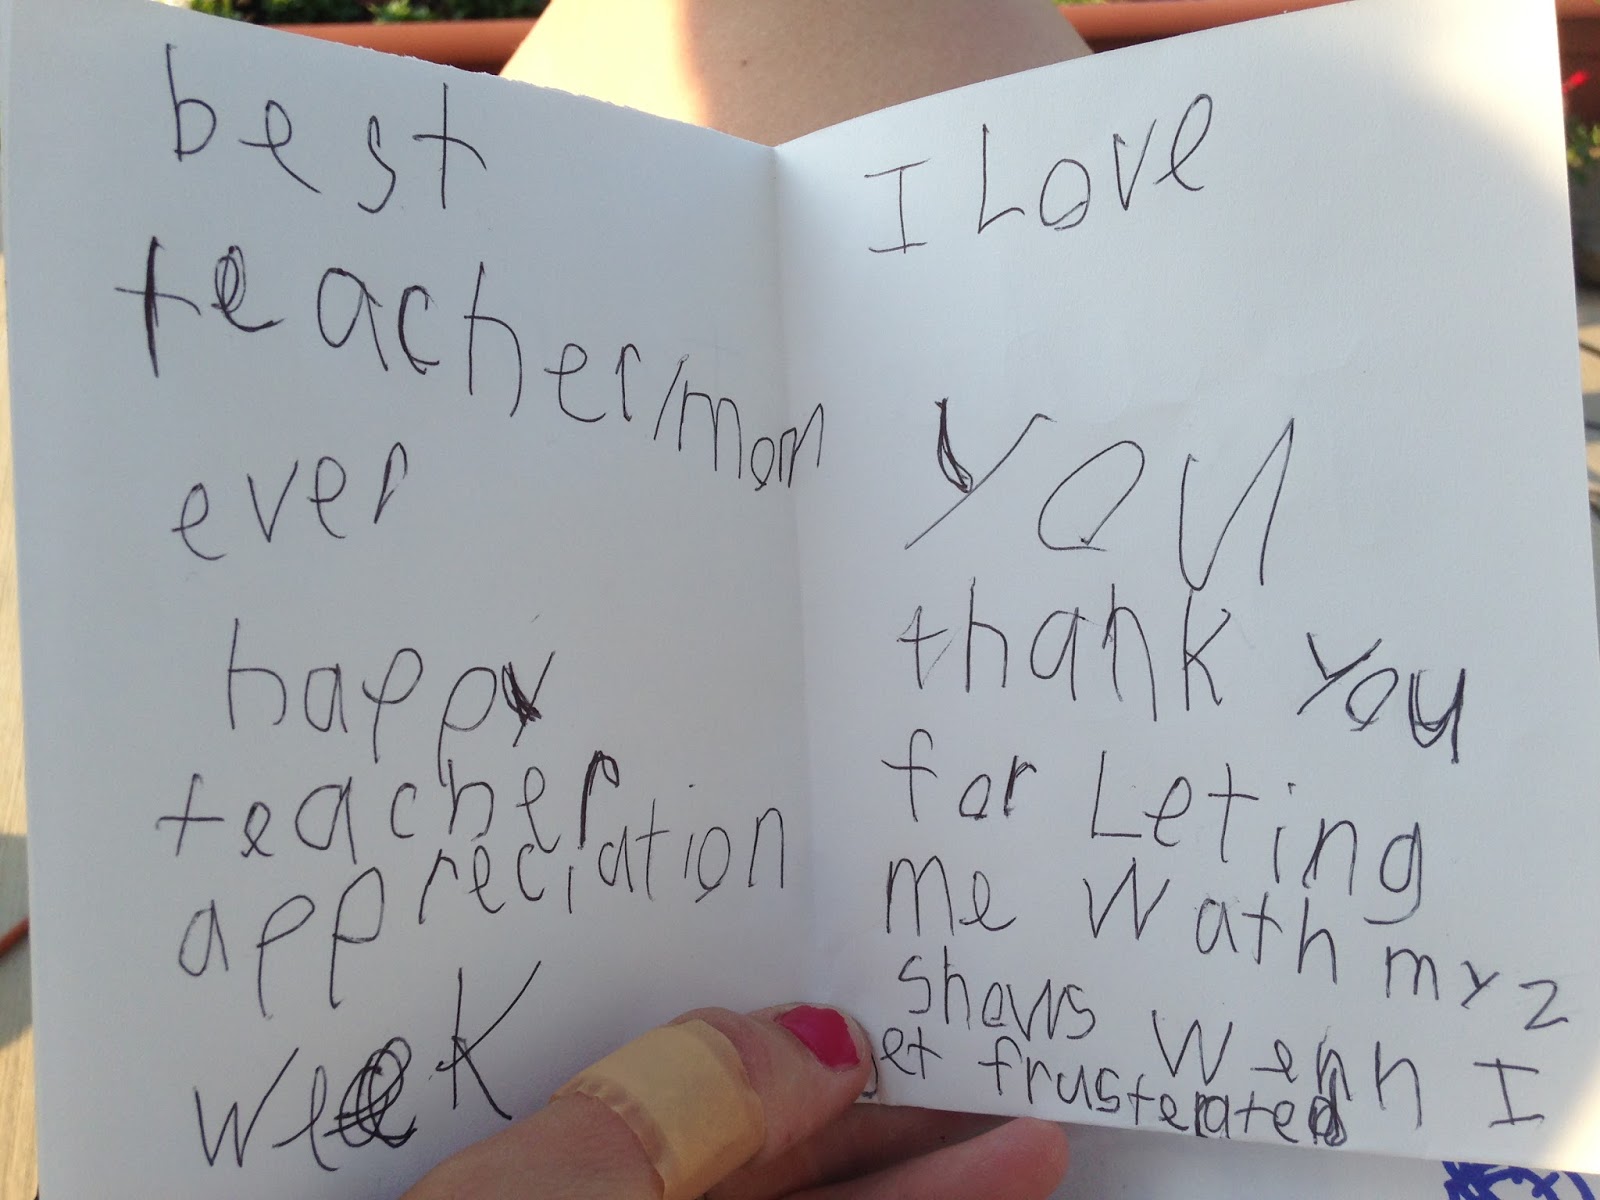 best
teacher/mom
ever
happy
teacher
appreciation
week
I Love
you
thank you
for Leting
me Wath my 2
shows Wenh I
get frusterated